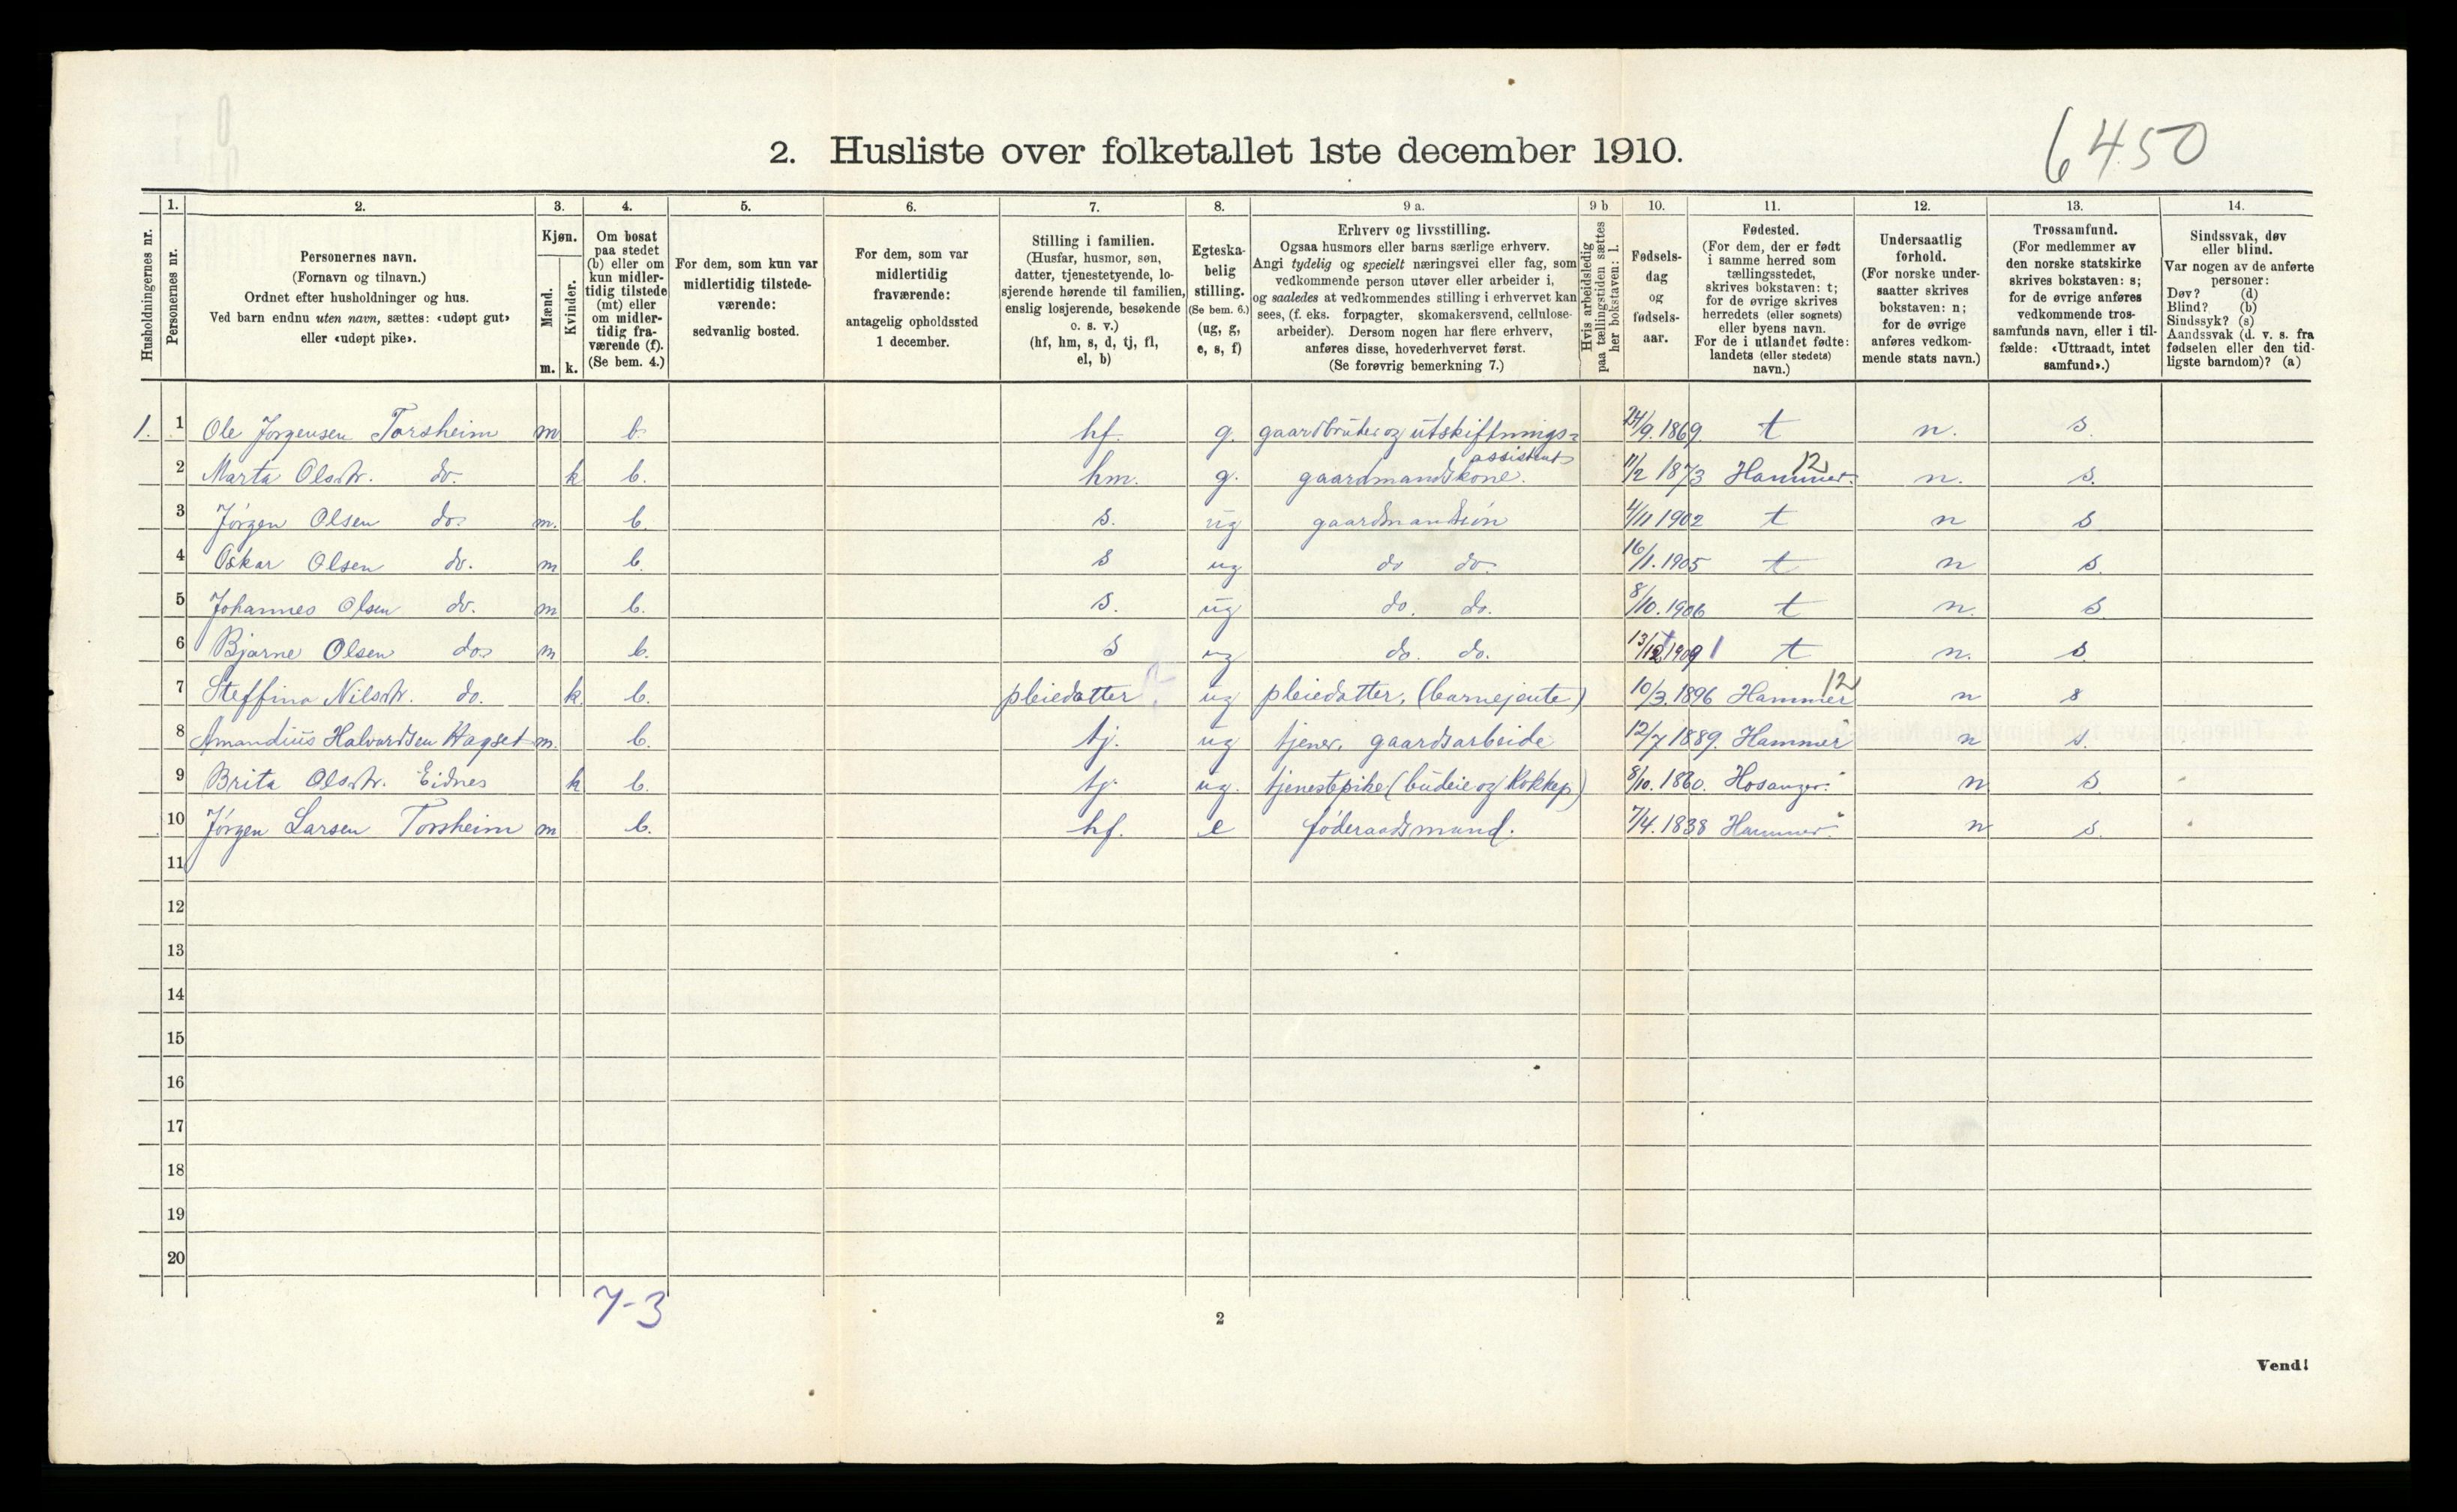 6450
2. Husliste over folketallet 1ste december 1910.
Husholdningernes nr.
1. Personernes nr.
2. Personernes navn. (Fornavn og tilnavn.) Ordnet efter husholdninger og hus. Ved barn endnu uten navn, sættes: «udøpt gut» eller «udøpt pike».
3. Kjøn. Mænd. m. Kvinder. k.
4. Om bosat paa stedet (b) eller om kun midlertidig tilstede (mt) eller om midlertidig fraværende (f). (Se bem. 4.)
5. For dem, som kun var midlertidig tilstedeværende: sedvanlig bosted.
6. For dem, som var midlertidig fraværende: antagelig opholdssted 1 december.
7. Stilling i familien. (Husfar, husmor, søn, datter, tjenestetyende, losjerende hørende til familien, enslig losjerende, besøkende o. s. v.) (hf, hm, s, d, tj, fl, el, b)
8. Egteskabelig stilling. (Se bem. 6.) (ug, g, e, s, f)
9 a. Erhverv og livsstilling. Ogsaa husmors eller barns særlige erhverv. Angi tydelig og specielt næringsvei eller fag, som vedkommende person utøver eller arbeider i, og saaledes at vedkommendes stilling i erhvervet kan sees, (f. eks. forpagter, skomakersvend, cellulosearbeider). Dersom nogen har flere erhverv, anføres disse, hovederhvervet først. (Se forøvrig bemerkning 7.)
9 b Hvis arbeidsledig paa tællingstiden sættes her bokstaven: l.
10. Fødselsdag og fødselsaar.
11. Fødested. (For dem, der er født i samme herred som tællingsstedet, skrives bokstaven: t; for de øvrige skrives herredets (eller sognets) eller byens navn. For de i utlandet fødte: landets (eller stedets) navn.)
12. Undersaatlig forhold. (For norske undersaatter skrives bokstaven: n; for de øvrige anføres vedkommende stats navn.)
13. Trossamfund. (For medlemmer av den norske statskirke skrives bokstaven: s; for de øvrige anføres vedkommende trossamfunds navn, eller i tilfælde: «Uttraadt, intet samfund».)
14. Sindssvak, døv eller blind. Var nogen av de anførte personer: Døv? (d) Blind? (b) Sindssyk? (s) Aandssvak (d. v. s. fra fødselen eller den tidligste barndom)? (a)
1. 1 Ole Jørgensen Torsheim m b. hf. g. gaardbruker og utskiftnings= assistent 24/9. 1869 t n. s.
2 Marta Olsdtr. do. k b. hm. g. gaardmandskone. 11/2 1873 Hammer. 12 n. s.
3 Jørgen Olsen do m. b. s. ug gaardmandssøn 4/11 1902 t n s
4 Oskar Olsen do. m b. s ug do do 16/1. 1905 t n s.
5 Johannes Olsen do. m b. s. ug do. do. 8/10. 1906 t n. s
6 Bjarne Olsen do m b. s ug do. do. 13/12 1909 t n. s.
7 Steffina Nilsdtr. do. k. b. pleiedatter ug pleiedatter, (barnejente) 10/3. 1896 Hammer 12 n s
8 Amandius Halvordsen Hagset m. b. tj. ug tjener, gaardsarbeide 12/7 1889. Hammer " n s.
9 Brita Olsdtr. Eidnes k b. tj. ug. tjenestepike (budeie og kokkep) 8/10. 1860. Hosanger. " n s.
10 Jørgen Larsen Torsheim m b. hf. e føderaadsmand. 7/4. 1838 Hammer. " n s.
11
12
13
14
15
16
17
18
19
20
7-3
2
Vend!